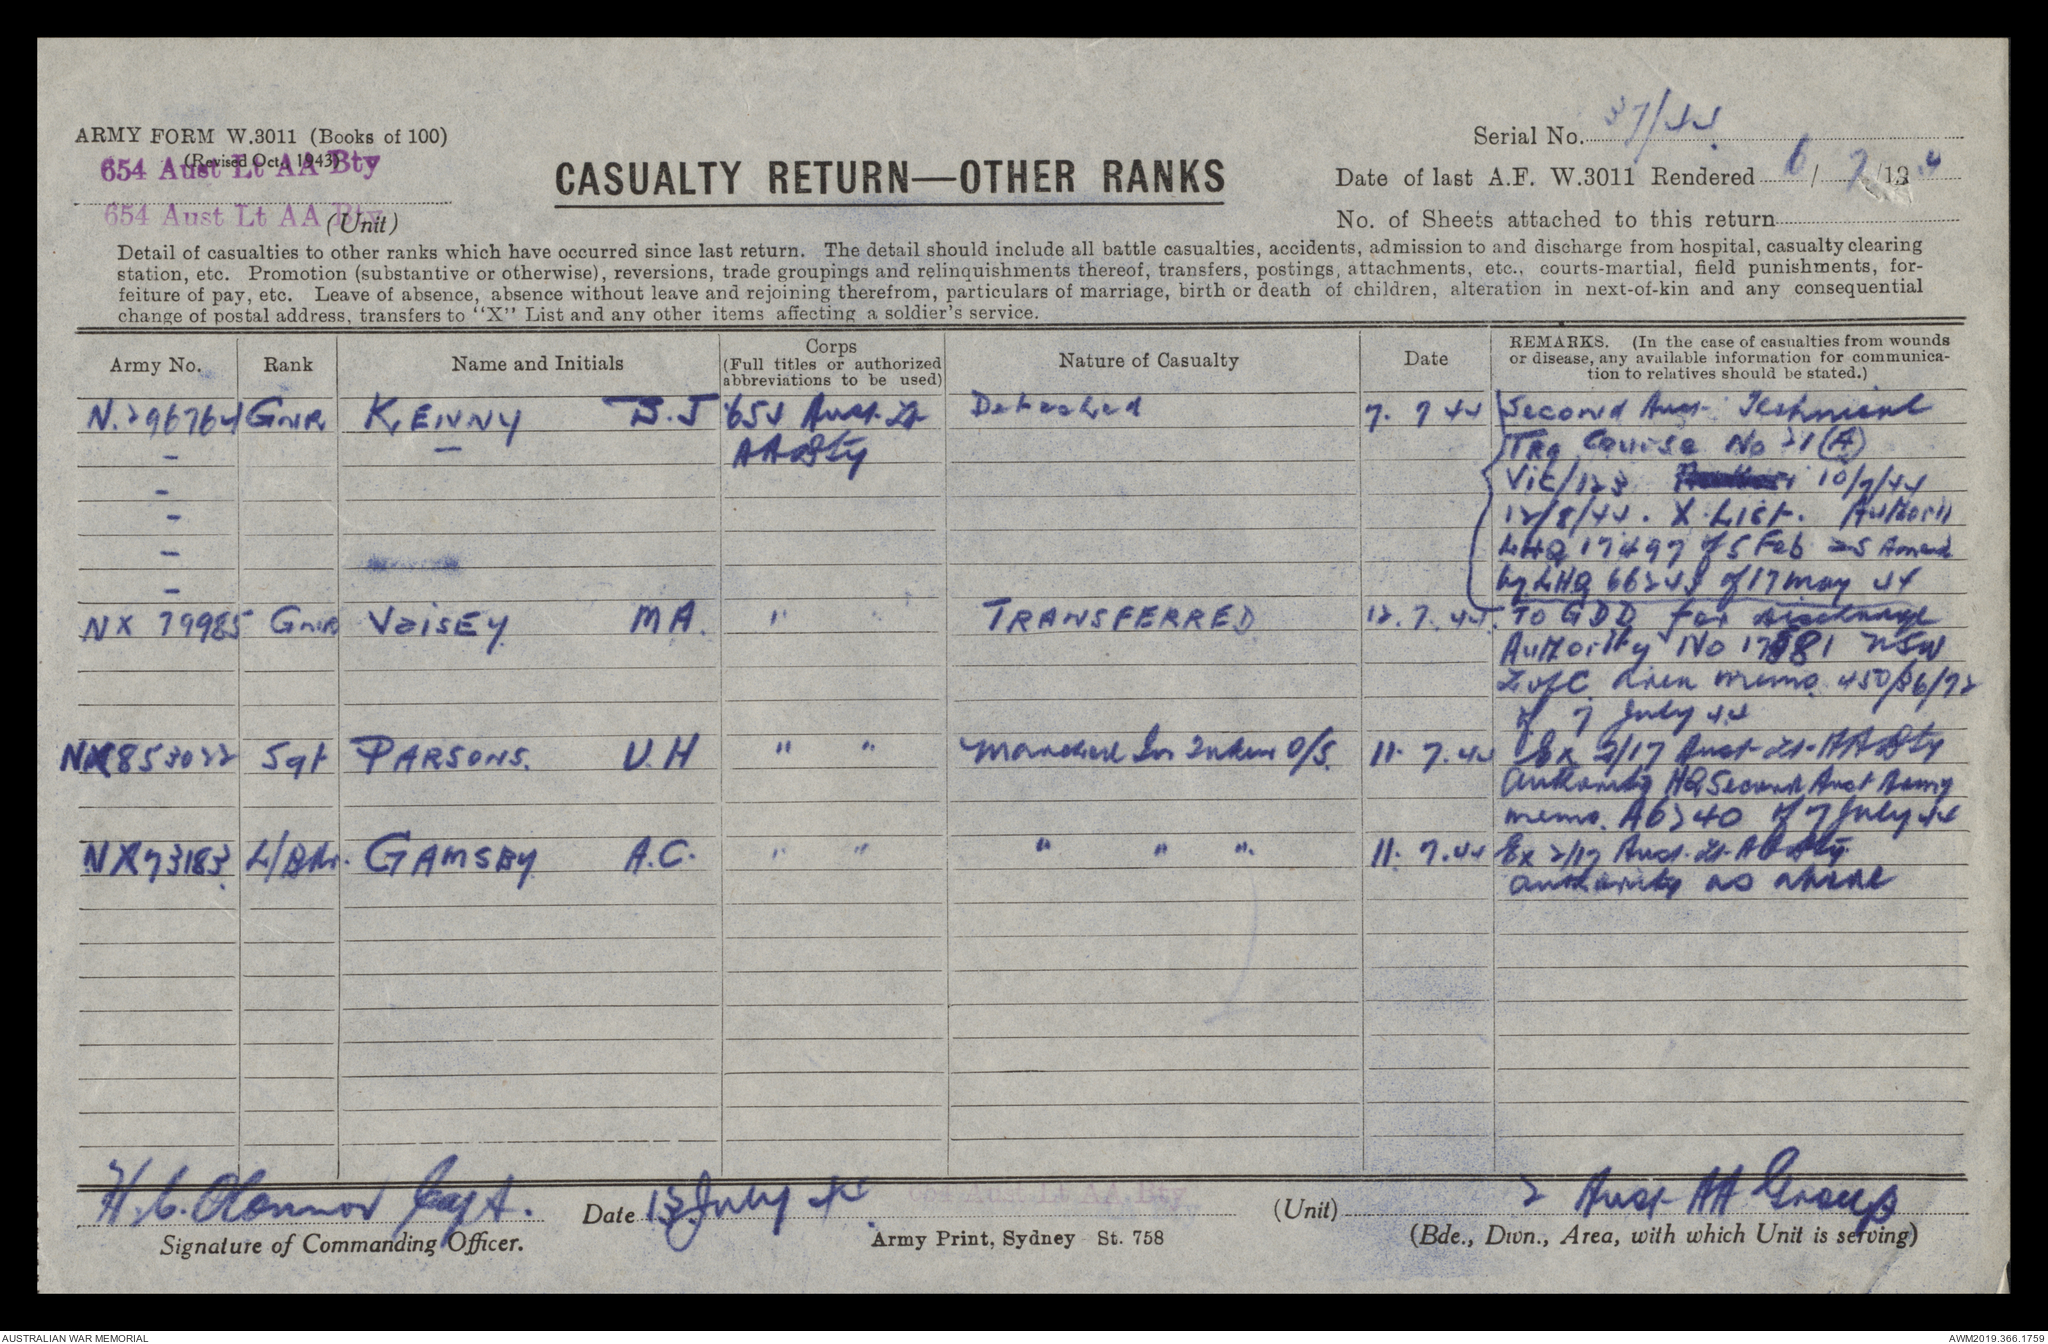 ARMY FORM W.3011 (Books of 100)
(Revised Oct., 1943)
654 Aust Lt AA Bty
654 Aust Lt AA Bty
(Unit)
CASUALTY RETURN—OTHER RANKS
Serial No. 37/44
Date of last A.F. W.3011 Rendered 6/7/194
No. of Sheets attached to this return
Detail of casualties to other ranks which have occurred since last return. The detail should include all battle casualties, accidents, admission to and discharge from hospital, casualty clearing
station, etc. Promotion (substantive or otherwise), reversions, trade groupings and relinquishments thereof, transfers, postings, attachments, etc., courts-martial, field punishments, for-
feiture of pay, etc. Leave of absence, absence without leave and rejoining therefrom, particulars of marriage, birth or death of children, alteration in next-of-kin and any consequential
change of postal address, transfers to "X" List and any other items affecting a soldier's service.
Army No. Rank Name and Initials Corps (Full titles or authorized abbreviations to be used) Nature of Casualty Date REMARKS. (In the case of casualties from wounds or disease, any available information for communica-tion to relatives should be stated.)
N.296764 Gnr KENNY J.J 654 Aust. Lt Detached 7. 7 44 Second Aust. Technical
- - AA Bty Trg Course No 21 (A)
- Vic/123 10/7/44
- 12/8/44. X List. Authorit
- LHQ 17497 of 5 Feb Amend
- by LHQ 66243 of 17 may 44
NX 79985 Gnr VaisEy MA. " " TRANSFERRED 12.7.44. TO GDD for discharge
Authority No 17981 NSW
L of C Area memo. 450/86/72
of 7 July 44
NX853022 Sgt PARSONS. V.H " " Marched In Taken O/S. 11. 7.44 Ex 2/17 Aust Lt AA Bty
authority HQ Second Aust Army
memo. A6240 of 7 July 44
NX73183 L/Bdr. GAMSBY A.C. " " " " " 11. 7.44 Ex 2/17 Aust. Lt. AA Bty.
authority as above
H.C. O'Connor Capt.
Signature of Commanding Officer.
Date 13 July 44.
654 Aust Lt AA Bty
(Unit)
2 Aust AA Group
Army Print, Sydney St. 758
(Bde., Dwn., Area, with which Unit is serving)
AUSTRALIAN WAR MEMORIAL
AWM2019.366.1759